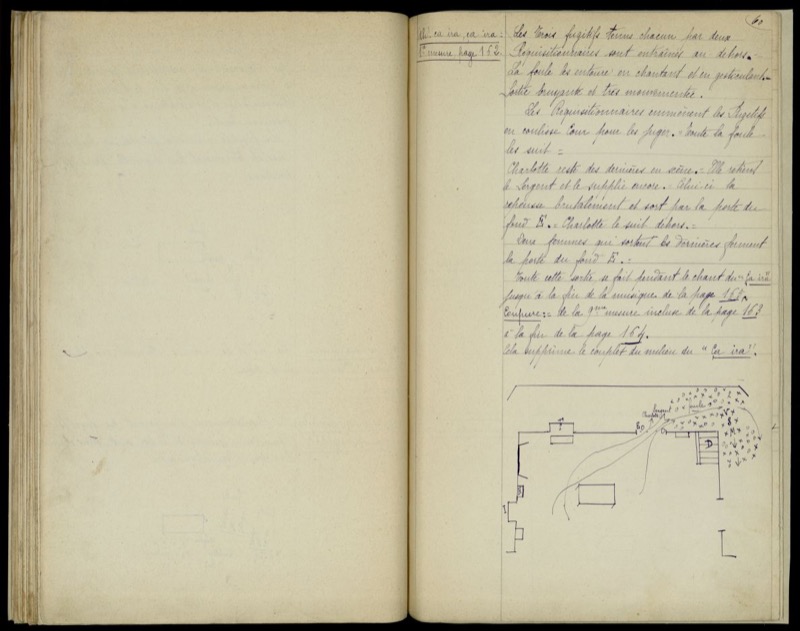 60
Ah! ca ira, ca ira =
mesure page 162.
Les trois fugitifs tenus chacun par deux
Réquisitionnaires sont entraînés au dehors.=
La foule les entoure en chantant et en gesticulant.=
Sortie bruyante et très mouvementée.
Les Réquisitionnaires emmènent les Fugitifs
en coulisse Cour pour les juger. = Toute la foule
les suit =
Charlotte reste des dernières en scène. = Elle retient
le Sergent et le supplie encore. = Celui-ci la
repousse brutalement et sort par la porte du
fond E. = Charlotte le suit dehors. =
Deux femmes qui sortent les dernières ferment
la porte du fond E. =
Toute cette sortie se fait pendant le chant du "Ça ira"
jusqu'à la fin de la musique de la page
Coupure := de la 9ème mesure incluse de la page 163
à la fin de la page 164.
Cela supprime le couplet du milieu du "Ça ira".
Sergent
Charlotte
foule
D